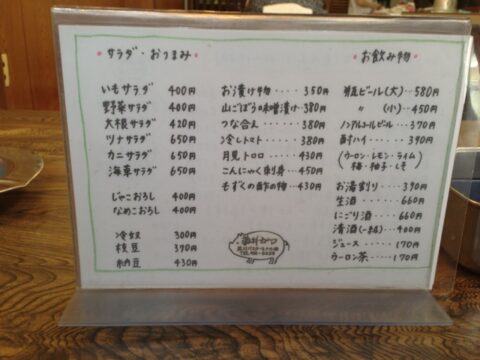 サラダ・おつまみ
いもサラダ 400円
野菜サラダ 400円
大根サラダ 420円
ツナサラダ 650円
カニサラダ 650円
海草サラダ 650円
じゃこおろし 400円
なめこおろし 400円
冷奴 300円
枝豆 390円
納豆 430円
お漬け物・・・350円
山ごぼうの味噌漬け・・380円
つな合え・・・・380円
冷しトマト・・・・380円
月見トロロ・・・・430円
こんにゃく刺身・・・450円
もずくの酢の物・・430円
お飲み物
瓶ビール(大)・・・580円
〃 (小)・・・450円
ノンアルコールビール・・・370円
酎ハイ・・・・・390円
(ウーロン・レモン・ライム
梅・柚子・しそ)
お湯割り・・・・390円
生酒・・・・・660円
にごり酒・・・・660円
清酒(一合)・・・400円
ジュース・・・・170円
ウーロン茶・・・・170円